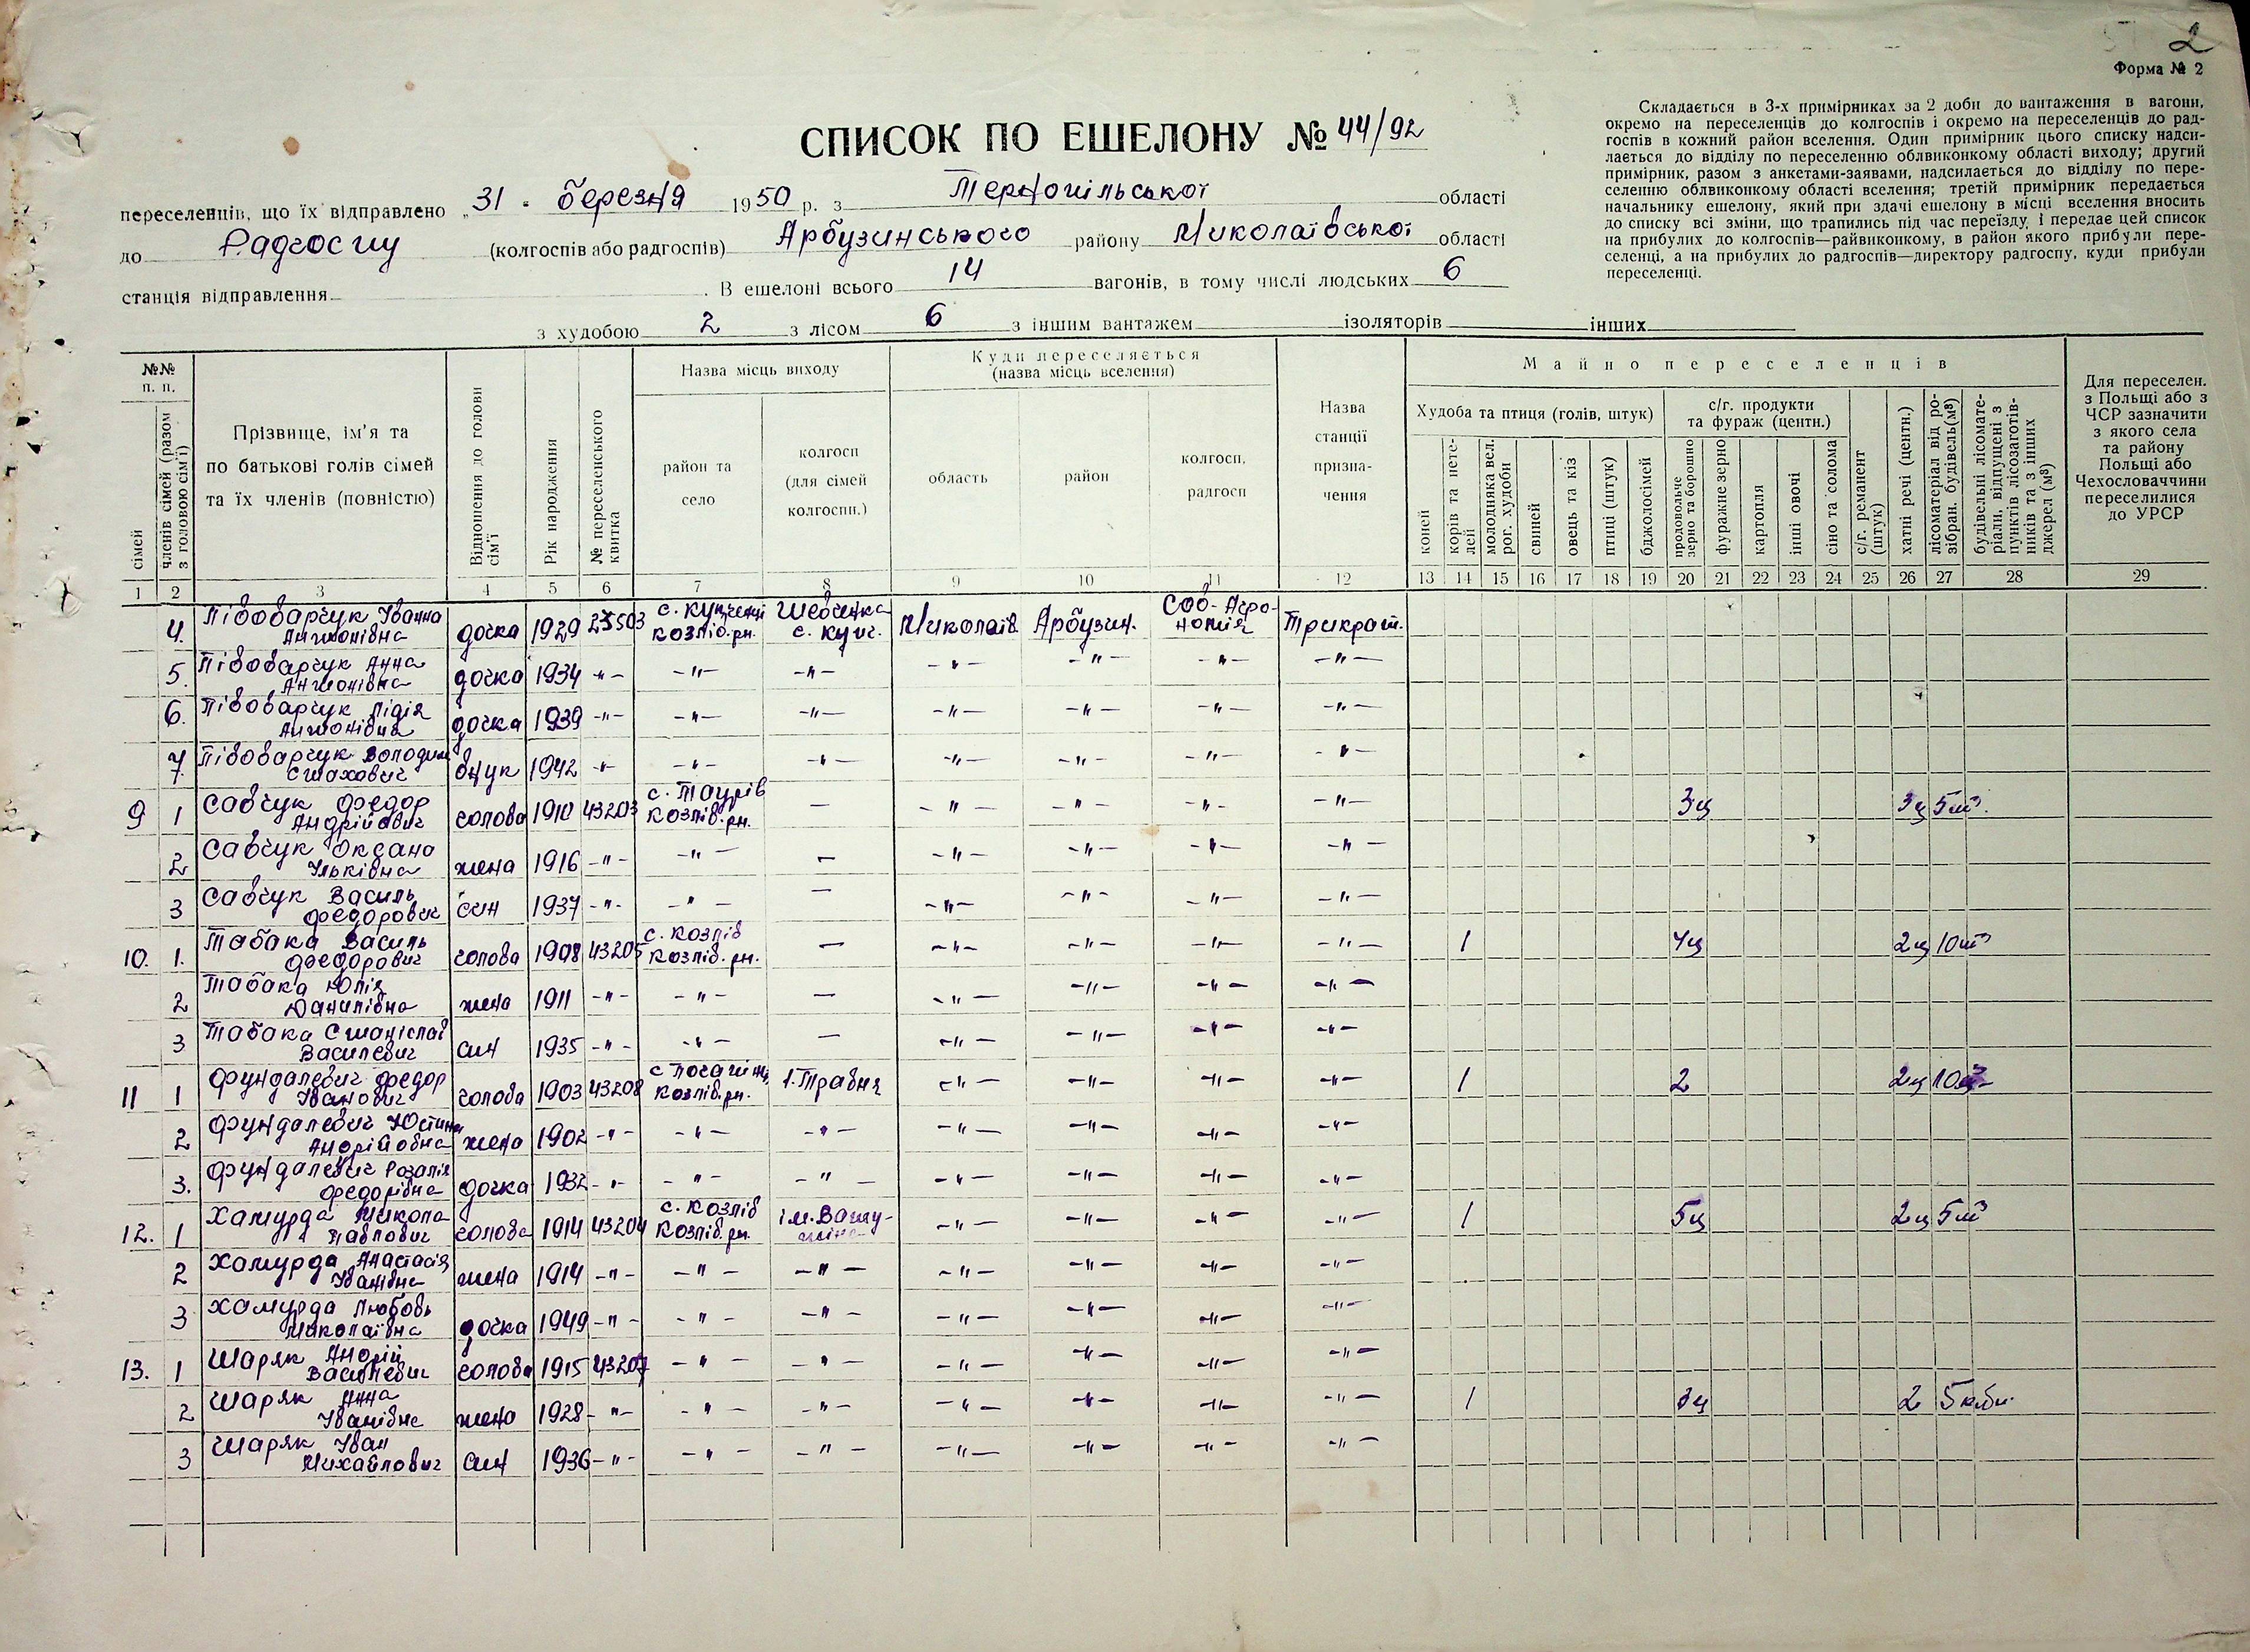 2
Форма № 2
СПИСОК ПО ЕШЕЛОНУ № 44/92
Складається в 3-х примірниках за 2 доби до вантаження в вагони,
окремо на переселенців до колгоспів і окремо на переселенців до рад-
госпів в кожний район вселення. Один примірник цього списку надси-
лається до відділу по переселенню облвиконкому області виходу; другий
примірник, разом з анкетами-заявами, надсилається до відділу по пере-
селенню облвиконкому області вселення; третій примірник передається
начальнику ешелону, який при здачі ешелону в місці вселення вносить
до списку всі зміни, що трапились під час переїзду, і передає цей список
на прибулих до колгоспів—райвиконкому, в район якого прибули пере-
селенці, а на прибулих до радгоспів—директору радгоспу, куди прибули
переселенці.
переселенців, що їх відправлено „31" березня 1950 р. з Тернопільської області
до Радгоспу (колгоспів або радгоспів) Арбузинського району Миколаївської області
станція відправлення . В ешелоні всього 14 вагонів, в тому числі людських 6
з худобою 2 з лісом 6 з іншим вантажем ізоляторів інших
№№ п. п.
сімей
членів сімей (разом з головою сім'ї)
Прізвище, ім'я та
по батькові голів сімей
та їх членів (повністю)
Відношення до голови сім'ї
Рік народження
№ переселенського квитка
Назва місць виходу
район та село
колгосп (для сімей колгоспн.)
Куди переселяється
(назва місць вселення)
область
район
колгосп, радгосп
Назва станції призна-чення
Майно переселенців
Худоба та птиця (голів, штук)
коней
корів та нете-лей
молодняка вел. рог. худоби
свиней
овець та кіз
птиці (штук)
бджолосімей
с/г. продукти та фураж (центн.)
продовольче зерно та борошно
фуражне зерно
картопля
інші овочі
сіно та солома
с/г. реманент (штук)
хатні речі (центн.)
лісоматеріал від ро-зібран. будівель (м³)
будівельні лісомате-ріали, відпущені з пунктів лісозаготів-ників та з інших джерел (м³)
Для переселен.
з Польщі або з
ЧСР зазначити
з якого села
та району
Польщі або
Чехословаччини
переселилися
до УРСР
1 2 3 4 5 6 7 8 9 10 11 12 13 14 15 16 17 18 19 20 21 22 23 24 25 26 27 28 29
4. Півоварчук Іванна Антонівна дочка 1929 козлів. рн. Шевченка Миколаїв Арбузин. Трикрат.
5. Півоварчук Анна Антонівна дочка 1934 -"- -"- -"- -"- -"- -"- -"-
6. Півоварчук Лідія Антонівна дочка 1939 -"- -"- -"- -"- -"- -"- -"-
7. Півоварчук Володим Стахович внук 1942 -"- -"- -"- -"- -"- -"- -"-
9 1 Савчук Федор Андрійович голова 1910 43203 с. Таурів козлів. рн. — -"- -"- -"- -"- 3ц 3ц 5м³.
2 Савчук Оксана Ільківна жена 1916 -"- -"- — -"- -"- -"- -"-
3 Савчук Василь Федорович син 1937 -"- -"- — -"- -"- -"- -"-
10. 1. Табака Василь Федорович голова 1908 43205 с. козлів козлів. рн. — -"- -"- -"- -"- 1 4ц 2ц 10м³
2 Табака Юлія Данилівна жена 1911 -"- -"- — -"- -"- -"- -"-
3 Табака Станіслав Василевич син 1935 -"- -"- — -"- -"- -"- -"-
11 1 Фундалевич Федор Іванович голова 1903 43208 козлів. рн. 1. Травня -"- -"- -"- -"- 1 2 2ц
2 Фундалевич Юстина Андрійовна жена 1902 -"- -"- -"- -"- -"- -"- -"-
3. Фундалевич Розалія Федорівна дочка 1932 -"- -"- -"- -"- -"- -"- -"-
12. 1 Хамурда Микола Павлович голова 1914 43204 с. козлів козлів. рн. -"- -"- -"- -"- 1 5ц 2ц 5м³
2 Хамурда Анастасія Іванівна жена 1914 -"- -"- -"- -"- -"- -"- -"-
3 Хамурда Любовь Миколаївна дочка 1949 -"- -"- -"- -"- -"- -"- -"-
13. 1 Шаряк Андрій Василевич голова 1915 43207 -"- -"- -"- -"- -"- -"-
2 Шаряк Анна Іванівна жена 1928 -"- -"- -"- -"- -"- -"- -"- 1 2
3 Шаряк Іван Михайлович син 1936 -"- -"- -"- -"- -"- -"- -"-